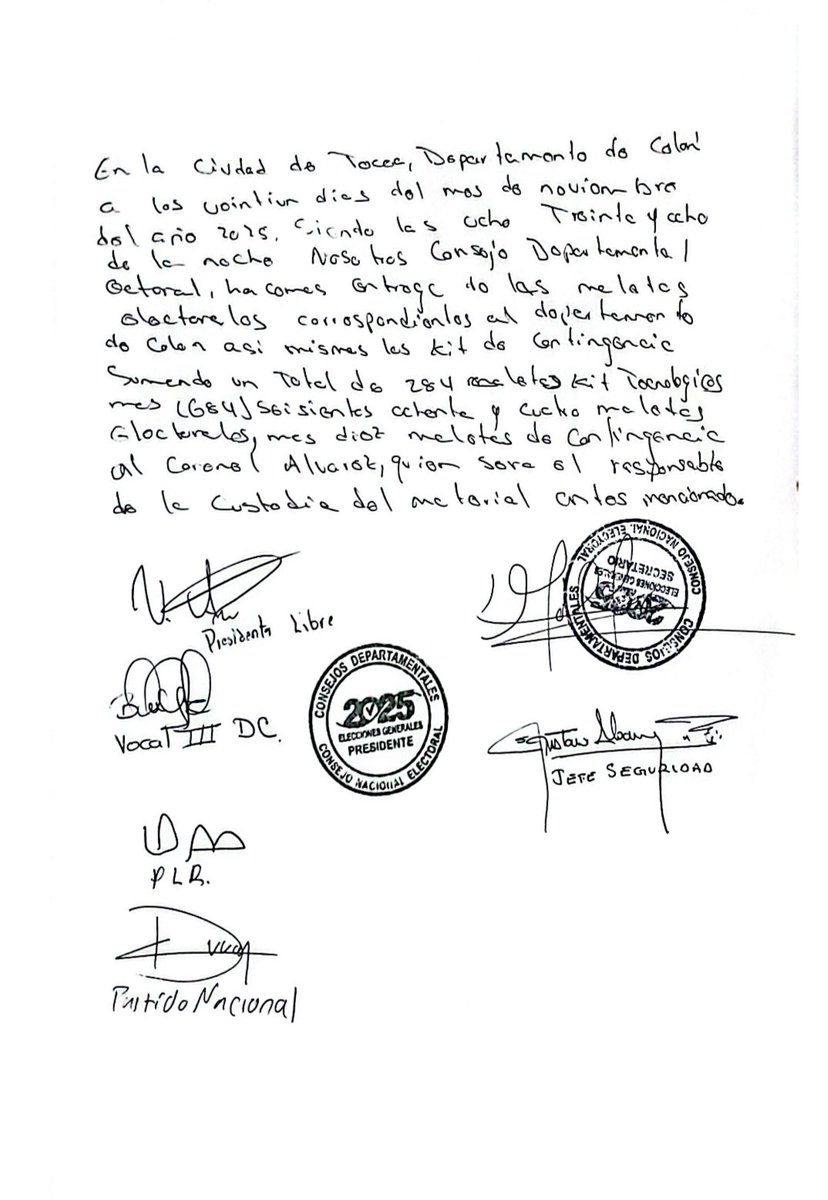 En la Ciudad de Tocoa, Departamento de Colón
a los veintiun dias del mes de noviembre
del año 2025, Siendo las ocho Treinta y ocho
de la noche Nosotros Consejo Departamental
Electoral, hacemos entrega de las maletas
electorales correspondientes al departamento
de Colon asi mismas las kit de Contingencia
Sumando un Total de 284 maletas Kit Tecnologicos
mas (684) Seisientas ochenta y cuatro maletas
Electorales, mas diez maletas de Contingencia
al Coronel Alvarez, quien sera el responsable
de la Custodia del material antes mencionado.
Presidenta Libre
CONSEJOS DEPARTAMENTALES
CONSEJO NACIONAL ELECTORAL
ELECCIONES GENERALES
SECRETARIO
Vocal III DC.
CONSEJOS DEPARTAMENTALES
2025
ELECCIONES GENERALES
PRESIDENTE
CONSEJO NACIONAL ELECTORAL
Gustavo
JEFE SEGURIDAD
P L R.
Partido Nacional